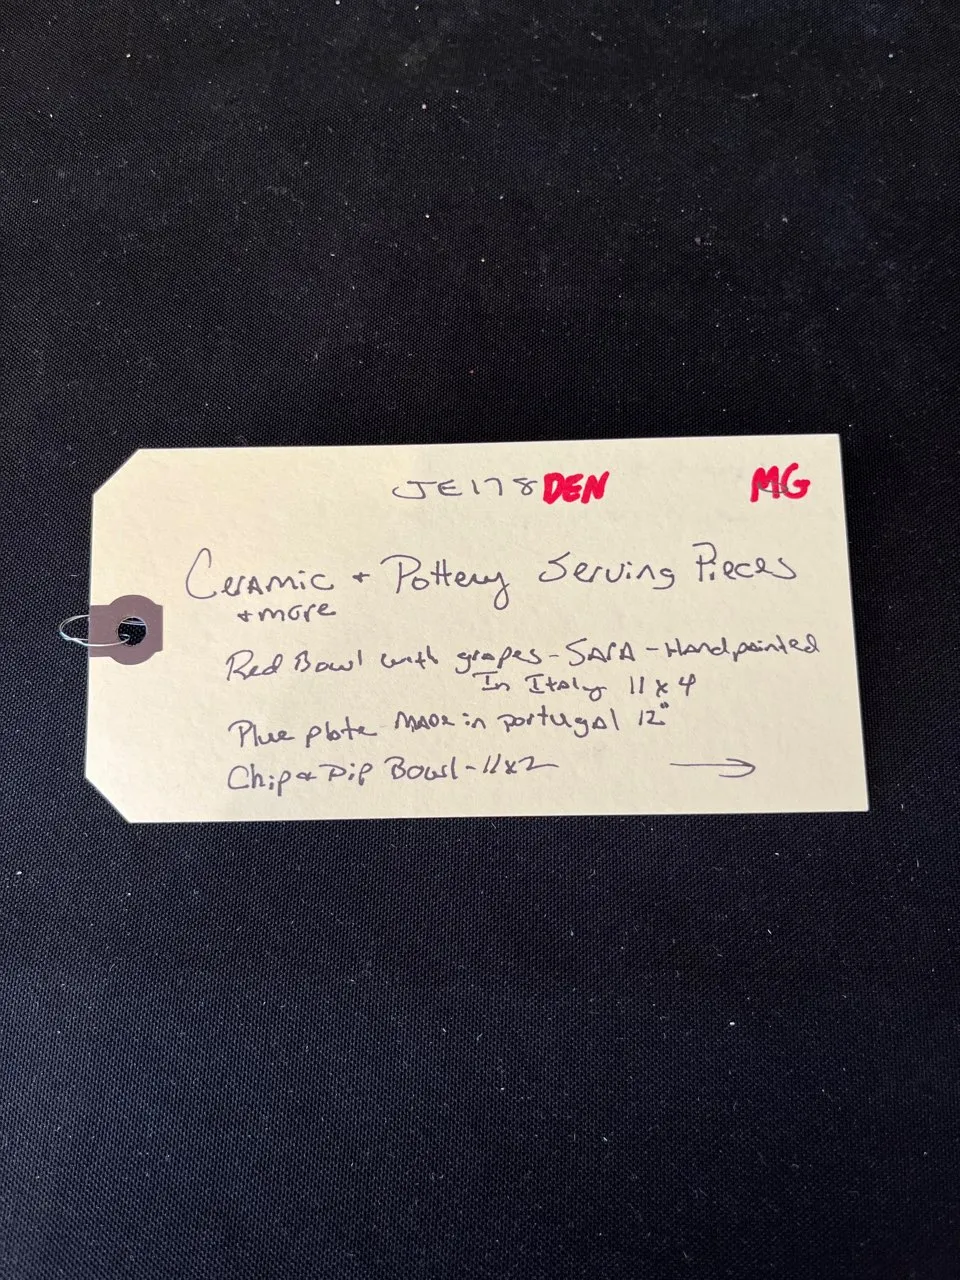 JE178 DEN MG
Ceramic + Pottery Serving Pieces
+ more
Red Bowl with grapes - SARA - Handpainted
In Italy 11 x 4
Plue plate MADE in portugal 12"
Chip & Dip Bowl - 11x2 →